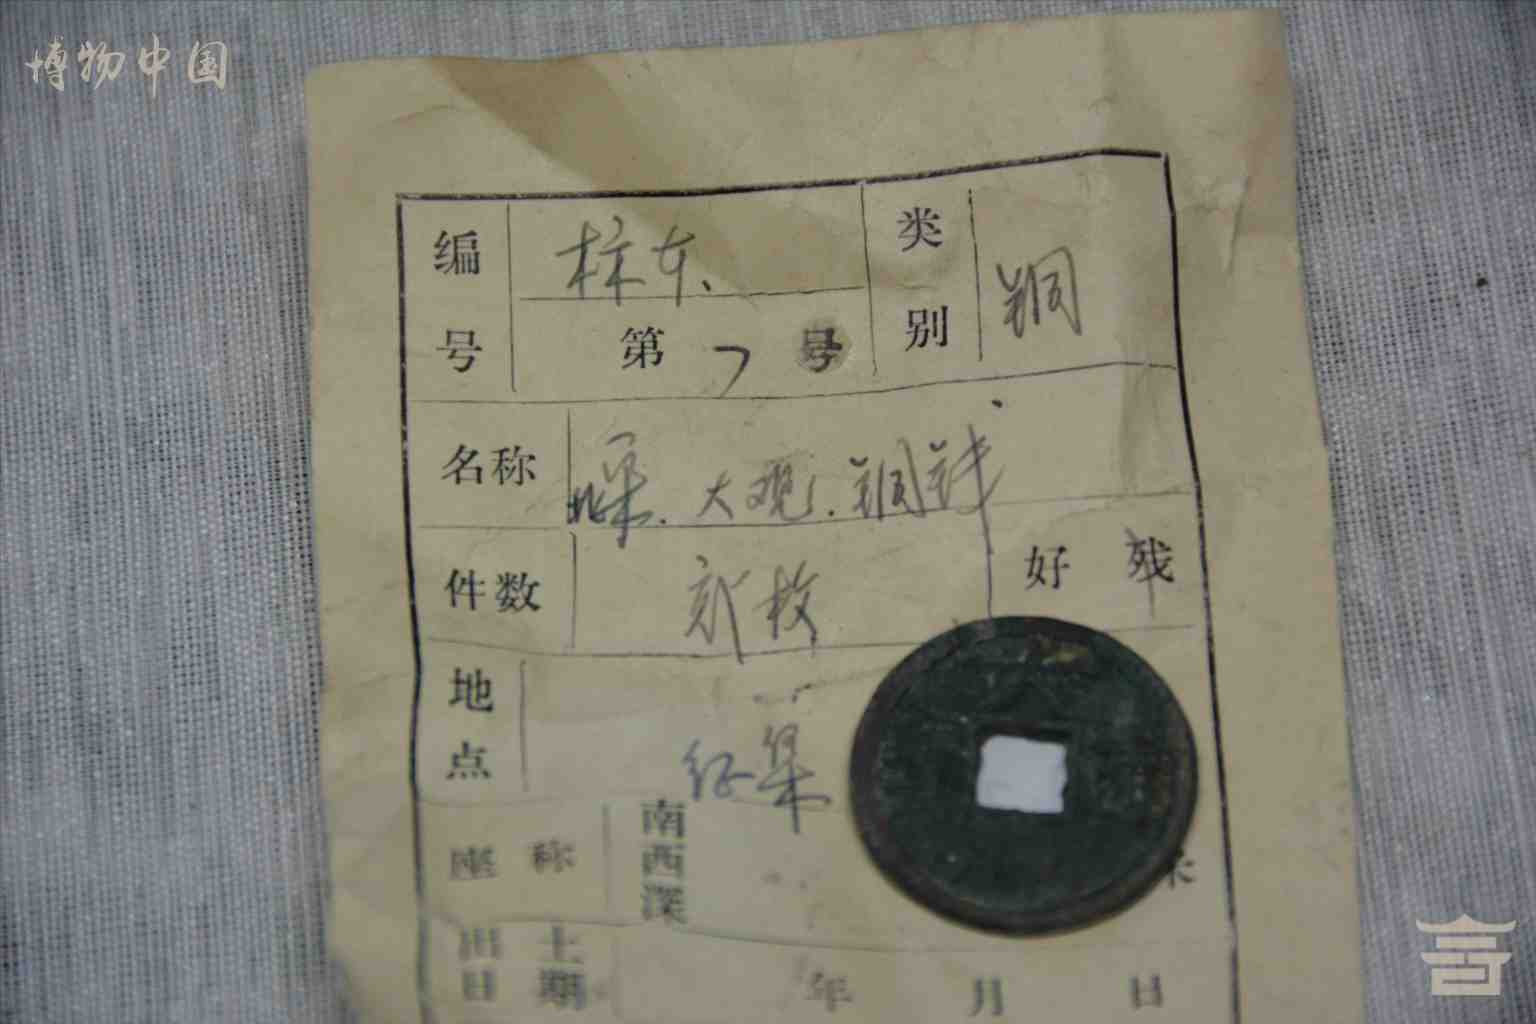 博物中国
编号 标本、 类别 铜
第 7 号
名称 北宋.大观.铜钱
件数 贰枚 好 残
地点 征集
座称 南
西
深 米
出土日期 年 月 日